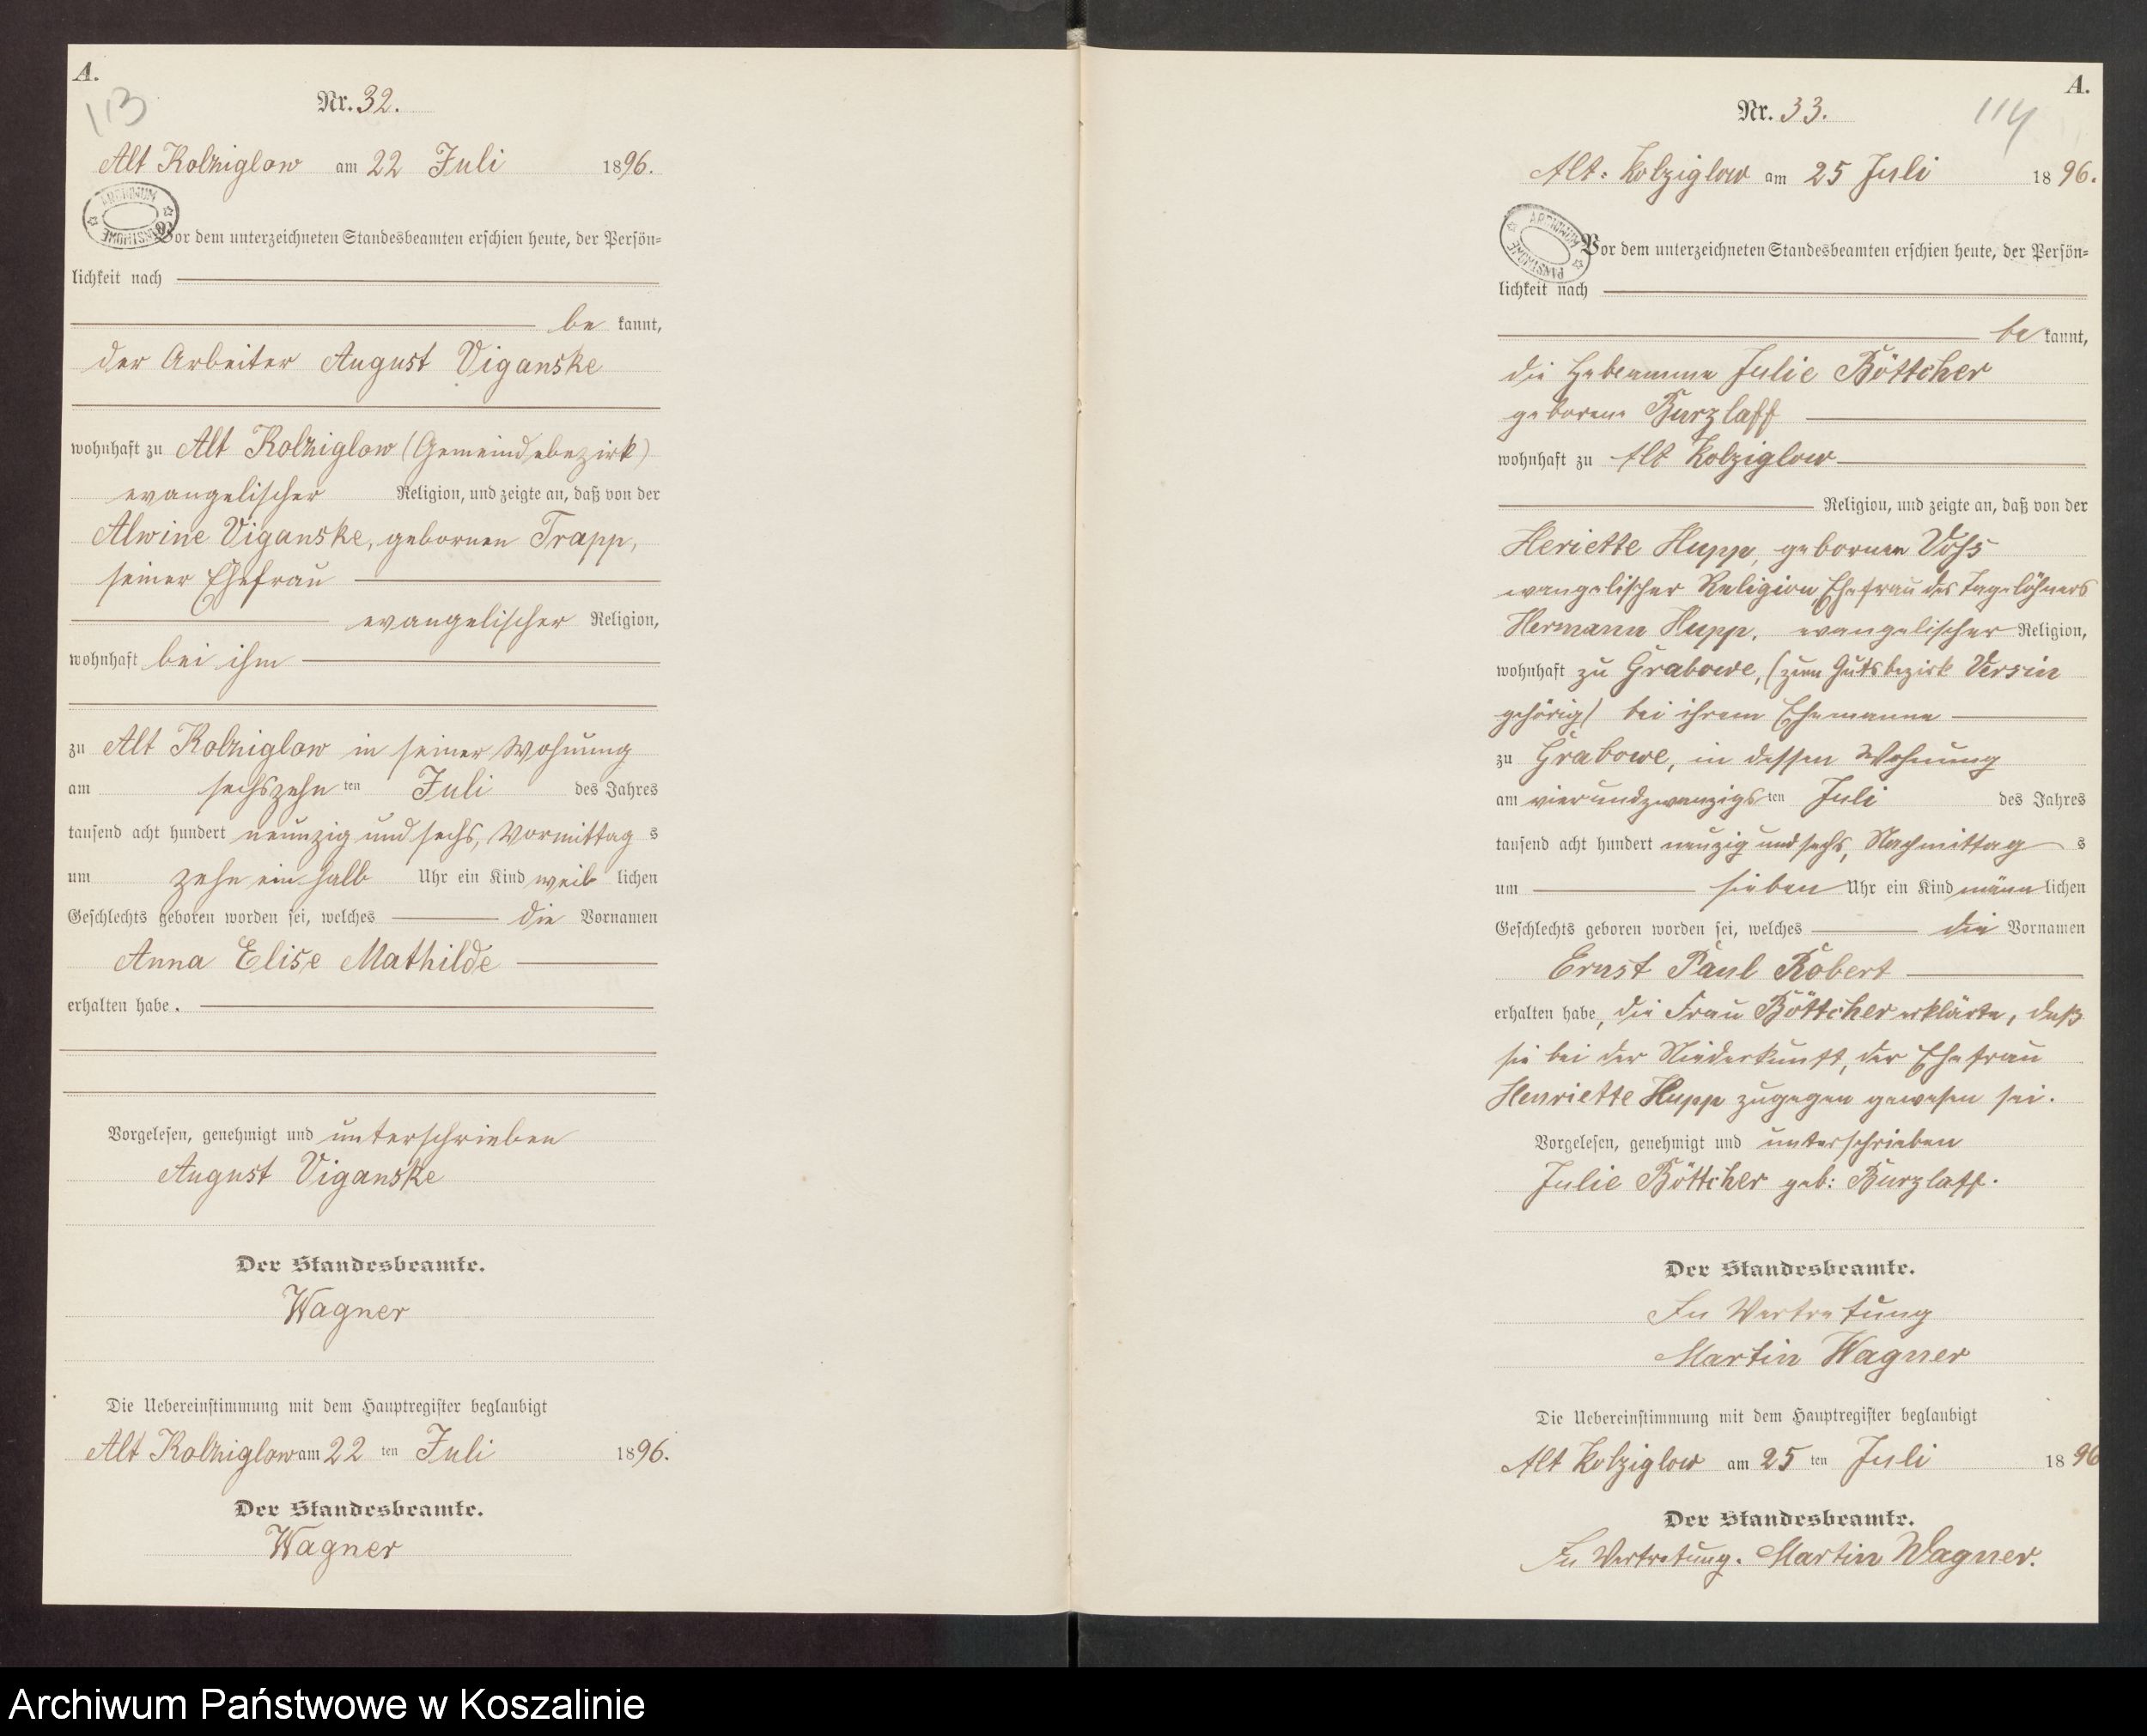 A.
113
Nr. 32.
Alt Kolziglow am 22 Juli 1896.
Vor dem unterzeichneten Standesbeamten erschien heute, der Persön=
lichkeit nach
be kannt,
der Arbeiter August Viganske
wohnhaft zu Alt Kolziglow (Gemeindebezirk)
evangelischer Religion, und zeigte an, daß von der
Alwine Viganske, gebornen Trapp,
seiner Ehefrau
evangelischer Religion,
wohnhaft bei ihm
zu Alt Kolziglow in seiner Wohnung
am sechszehn ten Juli des Jahres
tausend acht hundert neunzig und sechs, Vormittag s
um zehn ein halb Uhr ein Kind weib lichen
Geschlechts geboren worden sei, welches die Vornamen
Anna Elise Mathilde
erhalten habe.
Vorgelesen, genehmigt und unterschrieben
August Viganske
Der Standesbeamte.
Wagner
Die Uebereinstimmung mit dem Hauptregister beglaubigt
Alt Kolziglow am 22 ten Juli 1896.
Der Standesbeamte.
Wagner
A.
114
Nr. 33.
Alt-Kolziglow am 25 Juli 1896.
Vor dem unterzeichneten Standesbeamten erschien heute, der Persön=
lichkeit nach
be kannt,
die Hebeamme Julie Böttcher
geborene Burzlaff
wohnhaft zu Alt Kolziglow
Religion, und zeigte an, daß von der
Heriette Hupp, gebornen Voss
evangelischer Religion, Ehefrau des Tagelöhners
Hermann Hupp, evangelischer Religion,
wohnhaft zu Grabowe, (zum Gutsbezirk Versin
gehörig) bei ihrem Ehemanne
zu Grabowe, in dessen Wohnung
am vierundzwanzigs ten Juli des Jahres
tausend acht hundert neuzig und sechs, Nachmittag s
um sieben Uhr ein Kind männ lichen
Geschlechts geboren worden sei, welches die Vornamen
Ernst Paul Robert
erhalten habe, die Frau Böttcher erklärte, daß
sie bei der Niederkunft, der Ehefrau
Henriette Hupp zugegen gewesen sei.
Vorgelesen, genehmigt und unterschrieben
Julie Böttcher geb: Burzlaff.
Der Standesbeamte.
In Vertretung
Martin Wagner
Die Uebereinstimmung mit dem Hauptregister beglaubigt
Alt Kolziglow am 25 ten Juli 1896
Der Standesbeamte.
In Vertretung. Martin Wagner.
Archiwum Państwowe w Koszalinie